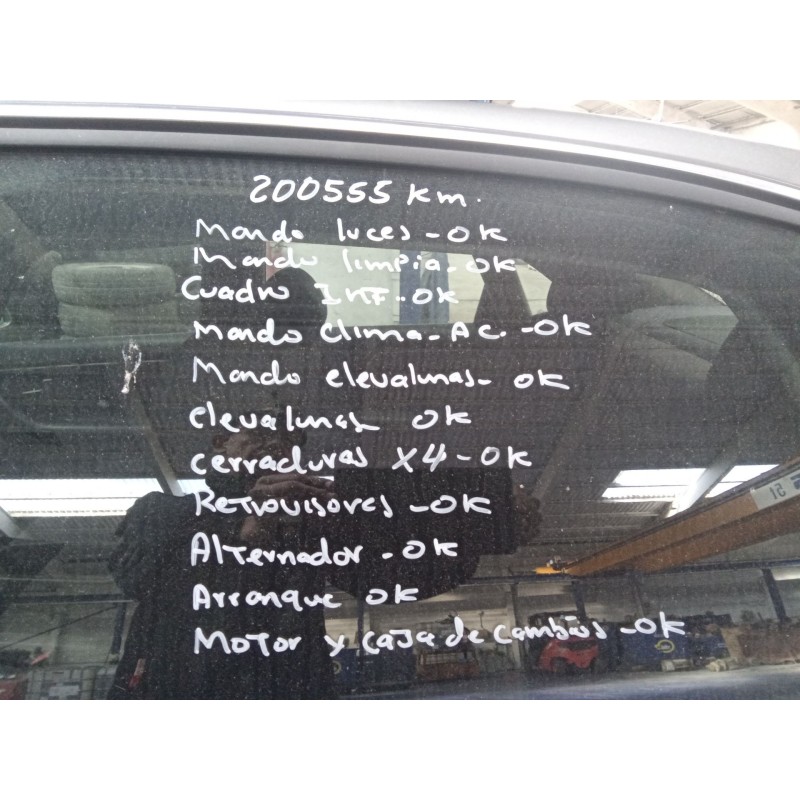 200555 km.
Mando luces - OK
Mando limpia - OK
Cuadro INF - OK
Mando clima - AC. - OK
Mando elevalunas - OK
elevalunas OK
cerraduras x4 - OK
Retrovisores - OK
Alternador - OK
Arranque OK
Motor y caja de cambios - OK